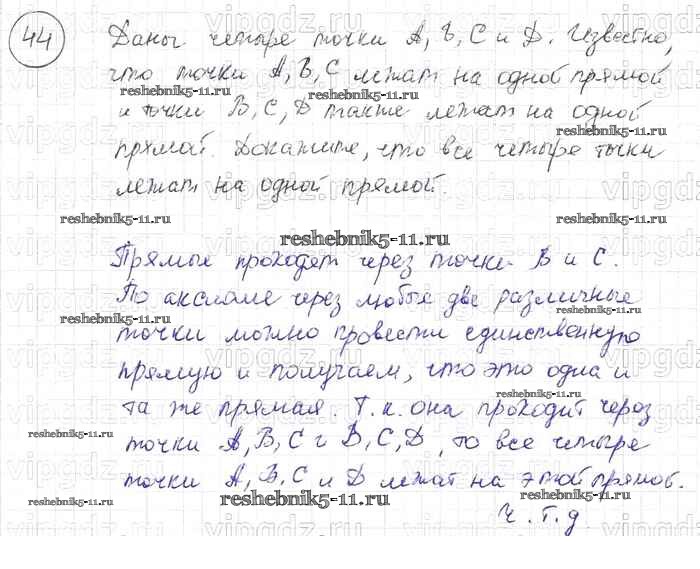 44
Даны четыре точки А, В, С и D. Известно,
что точки А, В, С лежат на одной прямой
и точки В, С, D также лежат на одной
прямой. Докажите, что все четыре точки
лежат на одной прямой.
Прямые проходят через точки В и С.
По аксиоме через любые две различные
точки можно провести единственную
прямую и получаем, что это одна и
та же прямая. Т.к. она проходит через
точки А, В, С и В, С, D, то все четыре
точки А, В, С и D лежат на этой прямой.
ч.т.д.
reshebnik5-11.ru
vipgdz.ru